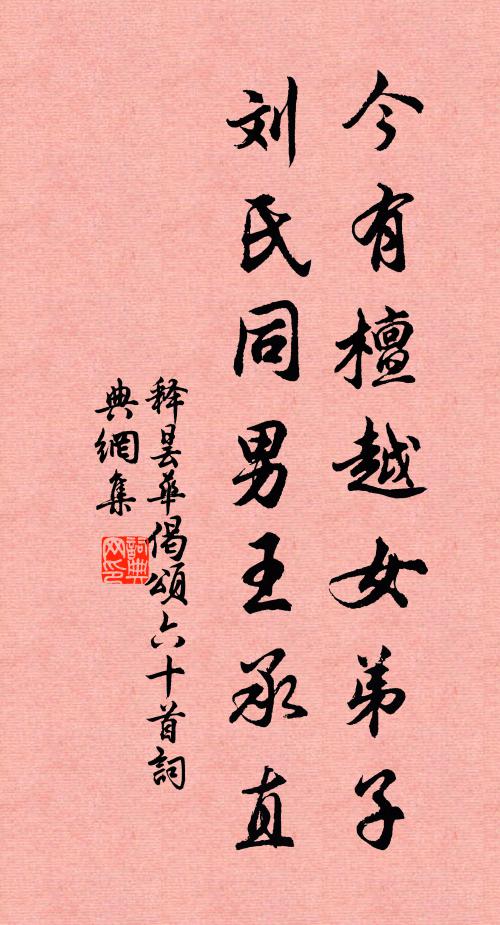 今有檀越女弟子
刘氏同男王承直
释昙华偈颂六十首詞
典網集
詞典
网印